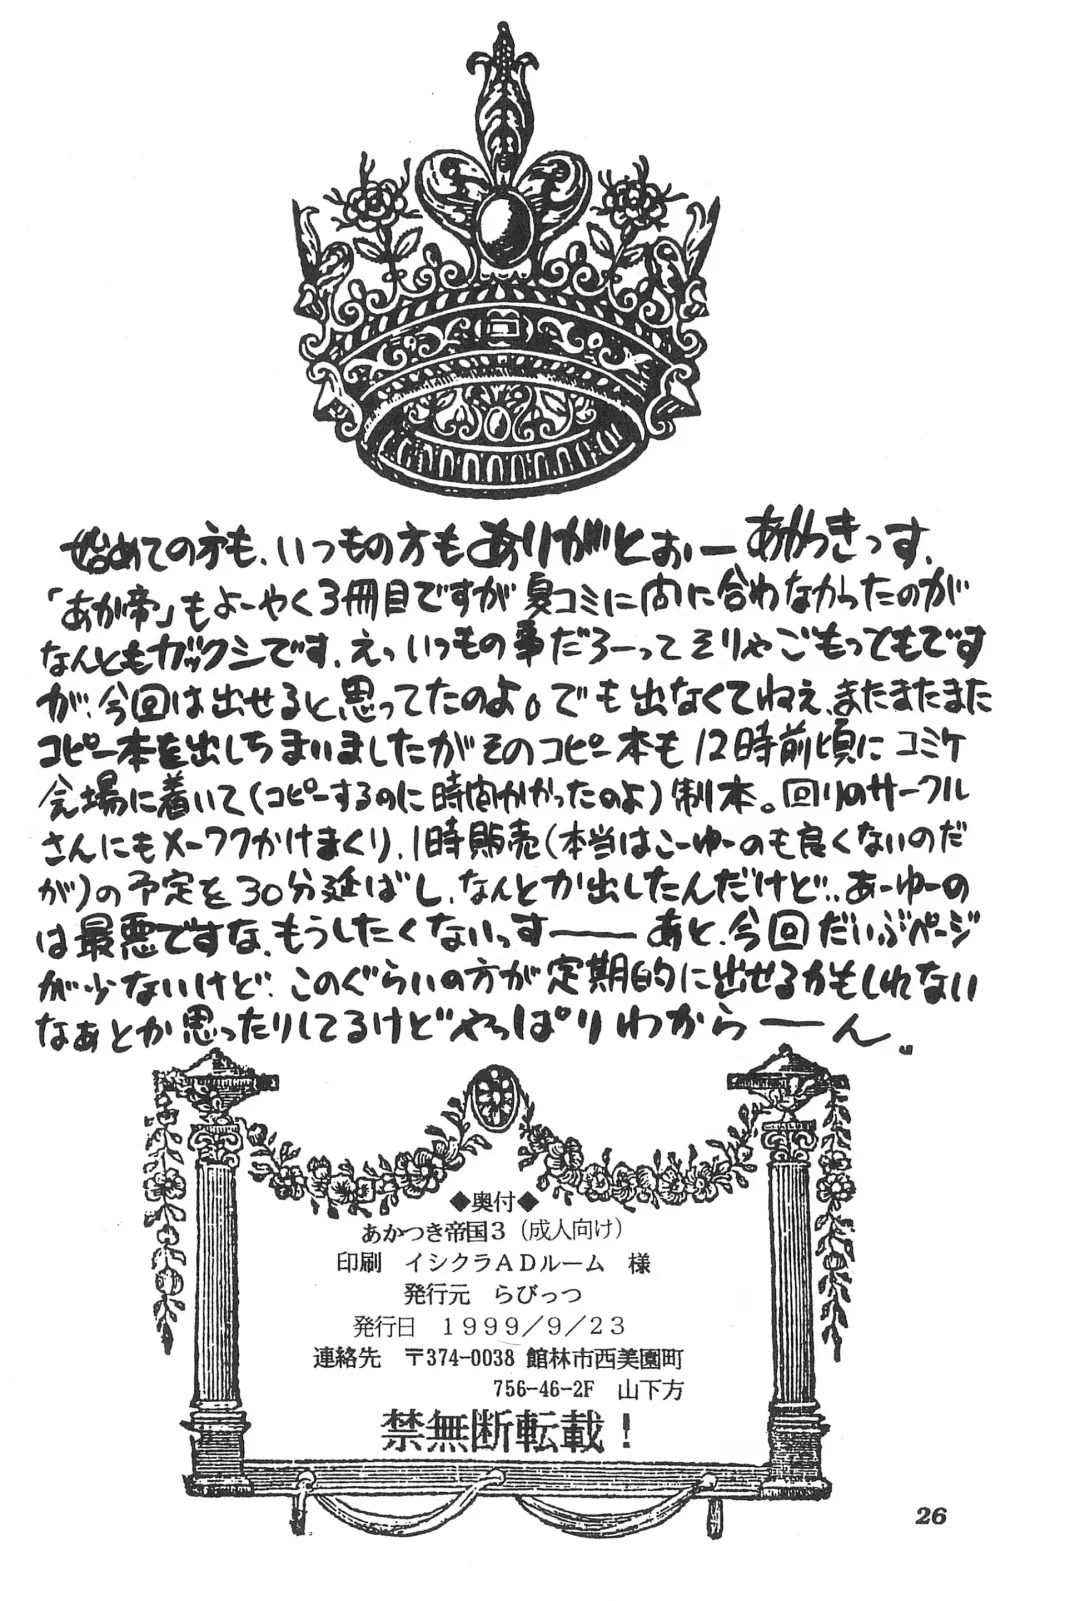 始めての方も、いつもの方もありがとぉー あかつきっす、
「あか帝」もよーやく3冊目ですが夏コミに間に合わなかったのが
なんともガックシです、えっいつもの事だろーってそりゃごもっともです
が、今回は出せると思ってたのよ。でも出なくてねぇ、またまたまた
コピー本を出しちまいましたがそのコピー本も12時前頃にコミケ
会場に着いて(コピーするのに時間かかったのよ)制本。回りのサークル
さんにもメーワクかけまくり、1時販売(本当はこーゆーのも良くないのだ
が)の予定を30分延ばし、なんとか出したんだけど、、あーゆーの
は最悪ですな、もうしたくないっすーーー あと、今回だいぶページ
が少ないけど、このぐらいの方が定期的に出せるかもしれない
なぁとか思ったりしてるけどやっぱりわからーーん。
◆奥付◆
あかつき帝国3(成人向け)
印刷 イシクラADルーム 様
発行元 らびっつ
発行日 1999/9/23
連絡先 〒374-0038 館林市西美園町
756-46-2F 山下方
禁無断転載!
26